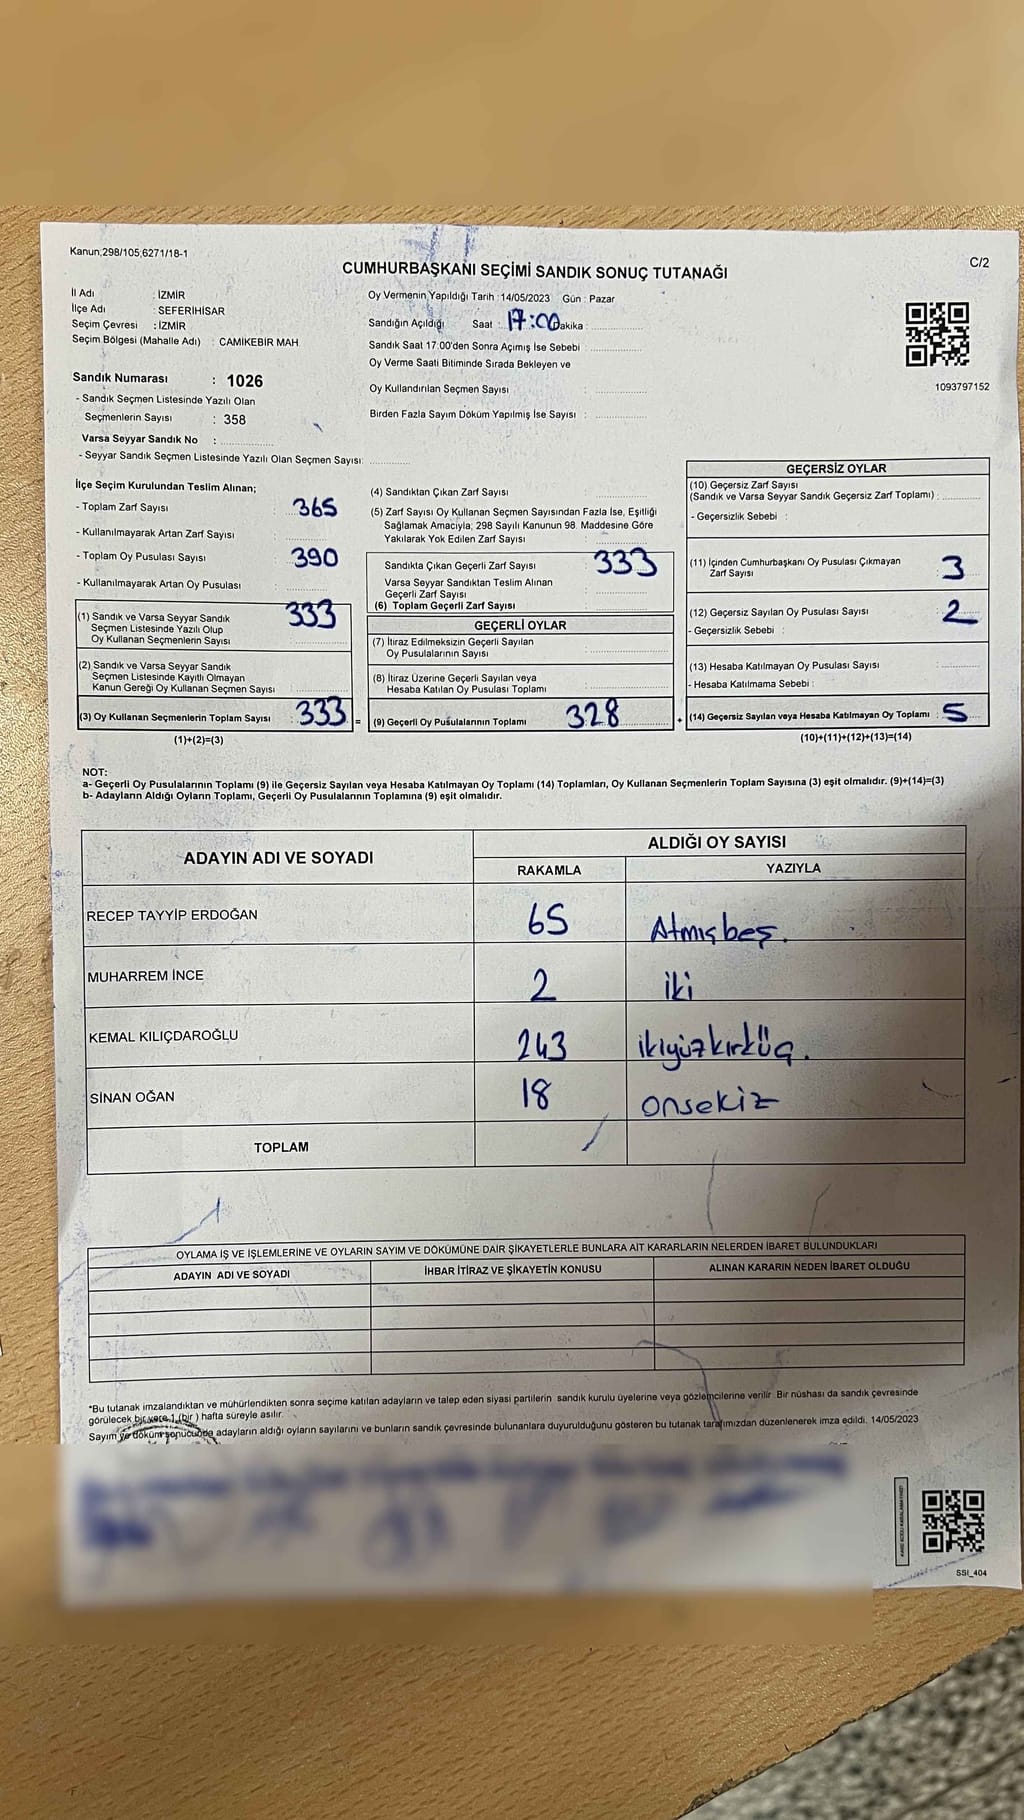 Kanun,298/105,6271/18-1
C/2
CUMHURBAŞKANI SEÇİMİ SANDIK SONUÇ TUTANAĞI
İl Adı : İZMİR
İlçe Adı : SEFERİHİSAR
Seçim Çevresi : İZMİR
Seçim Bölgesi (Mahalle Adı) : CAMİKEBİR MAH.
Sandık Numarası : 1026
- Sandık Seçmen Listesinde Yazılı Olan
Seçmenlerin Sayısı : 358
Varsa Seyyar Sandık No :
- Seyyar Sandık Seçmen Listesinde Yazılı Olan Seçmen Sayısı:
Oy Vermenin Yapıldığı Tarih : 14/05/2023 Gün : Pazar
Sandığın Açıldığı Saat : 17:00 Dakika :
Sandık Saat 17:00'den Sonra Açımış İse Sebebi :
Oy Verme Saati Bitiminde Sırada Bekleyen ve
Oy Kullandırılan Seçmen Sayısı :
Birden Fazla Sayım Döküm Yapılmış İse Sayısı :
1093797152
İlçe Seçim Kurulundan Teslim Alınan;
- Toplam Zarf Sayısı : 365
- Kullanılmayarak Artan Zarf Sayısı :
- Toplam Oy Pusulası Sayısı : 390
- Kullanılmayarak Artan Oy Pusulası :
(1) Sandık ve Varsa Seyyar Sandık
Seçmen Listesinde Yazılı Olup
Oy Kullanan Seçmenlerin Sayısı : 333
(2) Sandık ve Varsa Seyyar Sandık
Seçmen Listesinde Kayıtlı Olmayan
Kanun Gereği Oy Kullanan Seçmen Sayısı :
(3) Oy Kullanan Seçmenlerin Toplam Sayısı : 333 =
(1)+(2)=(3)
(4) Sandıktan Çıkan Zarf Sayısı :
(5) Zarf Sayısı Oy Kullanan Seçmen Sayısından Fazla İse, Eşitliği
Sağlamak Amacıyla; 298 Sayılı Kanunun 98. Maddesine Göre
Yakılarak Yok Edilen Zarf Sayısı :
Sandıkta Çıkan Geçerli Zarf Sayısı : 333
Varsa Seyyar Sandıktan Teslim Alınan
Geçerli Zarf Sayısı :
(6) Toplam Geçerli Zarf Sayısı :
GEÇERLİ OYLAR
(7) İtiraz Edilmeksizin Geçerli Sayılan
Oy Pusulalarının Sayısı :
(8) İtiraz Üzerine Geçerli Sayılan veya
Hesaba Katılan Oy Pusulası Toplamı :
(9) Geçerli Oy Pusulalarının Toplamı : 328 +
GEÇERSİZ OYLAR
(10) Geçersiz Zarf Sayısı
(Sandık ve Varsa Seyyar Sandık Geçersiz Zarf Toplamı) :
- Geçersizlik Sebebi :
(11) İçinden Cumhurbaşkanı Oy Pusulası Çıkmayan
Zarf Sayısı : 3
(12) Geçersiz Sayılan Oy Pusulası Sayısı : 2
- Geçersizlik Sebebi :
(13) Hesaba Katılmayan Oy Pusulası Sayısı :
- Hesaba Katılmama Sebebi :
(14) Geçersiz Sayılan veya Hesaba Katılmayan Oy Toplamı : 5
(10)+(11)+(12)+(13)=(14)
NOT:
a- Geçerli Oy Pusulalarının Toplamı (9) ile Geçersiz Sayılan veya Hesaba Katılmayan Oy Toplamı (14) Toplamları, Oy Kullanan Seçmenlerin Toplam Sayısına (3) eşit olmalıdır. (9)+(14)=(3)
b- Adayların Aldığı Oyların Toplamı, Geçerli Oy Pusulalarının Toplamına (9) eşit olmalıdır.
ADAYIN ADI VE SOYADI
ALDIĞI OY SAYISI
RAKAMLA YAZIYLA
RECEP TAYYİP ERDOĞAN 65 Atmışbeş.
MUHARREM İNCE 2 iki
KEMAL KILIÇDAROĞLU 243 ikiyüzkırküç.
SİNAN OĞAN 18 onsekiz
TOPLAM
OYLAMA İŞ VE İŞLEMLERİNE VE OYLARIN SAYIM VE DÖKÜMÜNE DAİR ŞİKAYETLERLE BUNLARA AİT KARARLARIN NELERDEN İBARET BULUNDUKLARI
ADAYIN ADI VE SOYADI İHBAR İTİRAZ VE ŞİKAYETİN KONUSU ALINAN KARARIN NEDEN İBARET OLDUĞU
*Bu tutanak imzalandıktan ve mühürlendikten sonra seçime katılan adayların ve talep eden siyasi partilerin sandık kurulu üyelerine veya gözlemcilerine verilir. Bir nüshası da sandık çevresinde
görülecek bir yere 1 (bir ) hafta süreyle asılır.
Sayım ve döküm sonucunda adayların aldığı oyların sayılarını ve bunların sandık çevresinde bulunanlara duyurulduğunu gösteren bu tutanak tarafımızdan düzenlenerek imza edildi. 14/05/2023
SSI_404